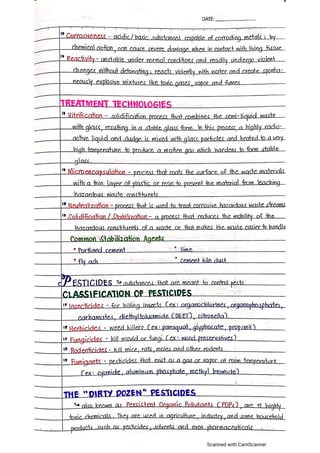 DATE:
Corrosiveness - acidic/basic substances capable of corroding metals; by
chemical action, can cause severe damage when in contact with living tissue
Reactivity - unstable under normal conditions and readily undergo violent
changes without detonating; reacts violently with water and create sponta-
neously explosive mixtures like toxic gases, vapor and fumes
TREATMENT TECHNOLOGIES
Vitrification - solidification process that combines the semi-liquid waste
with glass, resulting in a stable glass form. In this process, a highly radio-
active liquid and sludge is mixed with glass particles and heated to a very
high temperature to produce a molten gas which hardens to form stable
glass
Microencapsulation - process that coats the surface of the waste materials
with a thin layer of plastic or resin to prevent the material from leaching
hazardous waste constituents
Neutralization - process that is used to treat corrosive hazardous waste streams
Solidification / Stabilization - a process that reduces the mobility of the
hazardous constituents of a waste or that makes the waste easier to handle
Common Stabilization Agents
* Portland cement * lime
* fly ash * cement kiln dust
PESTICIDES substances that are meant to control pests
CLASSIFICATION OF PESTICIDES
Insecticides - for killing insects (ex: organochlorines, organophosphates,
carbamates, diethyltoluamide (DEET), citronella)
Herbicides - weed killers (ex: paraquat, glyphosate, propanil)
Fungicides - kill mould or fungi (ex: wood preservatives)
Rodenticides - kill mice, rats, moles and other rodents
Fumigants - pesticides that exist as a gas or vapor at room temperature
(ex: cyanide, aluminum phosphate, methyl bromide)
THE "DIRTY DOZEN" PESTICIDES
also known as Persistent Organic Pollutants (POPs), are 12 highly
toxic chemicals. They are used in agriculture, industry, and some household
products such as pesticides, solvents and even pharmaceuticals
Scanned with CamScanner